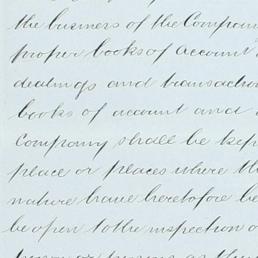 the business of the Compan
proper books of account
dealings and transactio
books of account and
Company shall be kep
place or places where th
nature have heretofore be
be open to the inspection o
person or persons as the